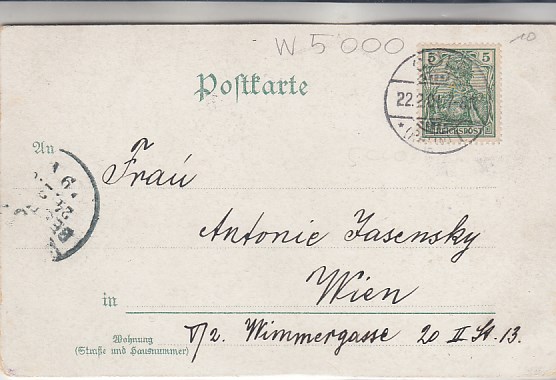 W 5000
10
Postkarte
5 5
REICHSPOST
22.2.01.7-8
An
Frau
Antonie Jasensky
Wien
in
Wohnung
(Straße und Hausnummer)
V/2. Wimmergasse 20 II St. 13.